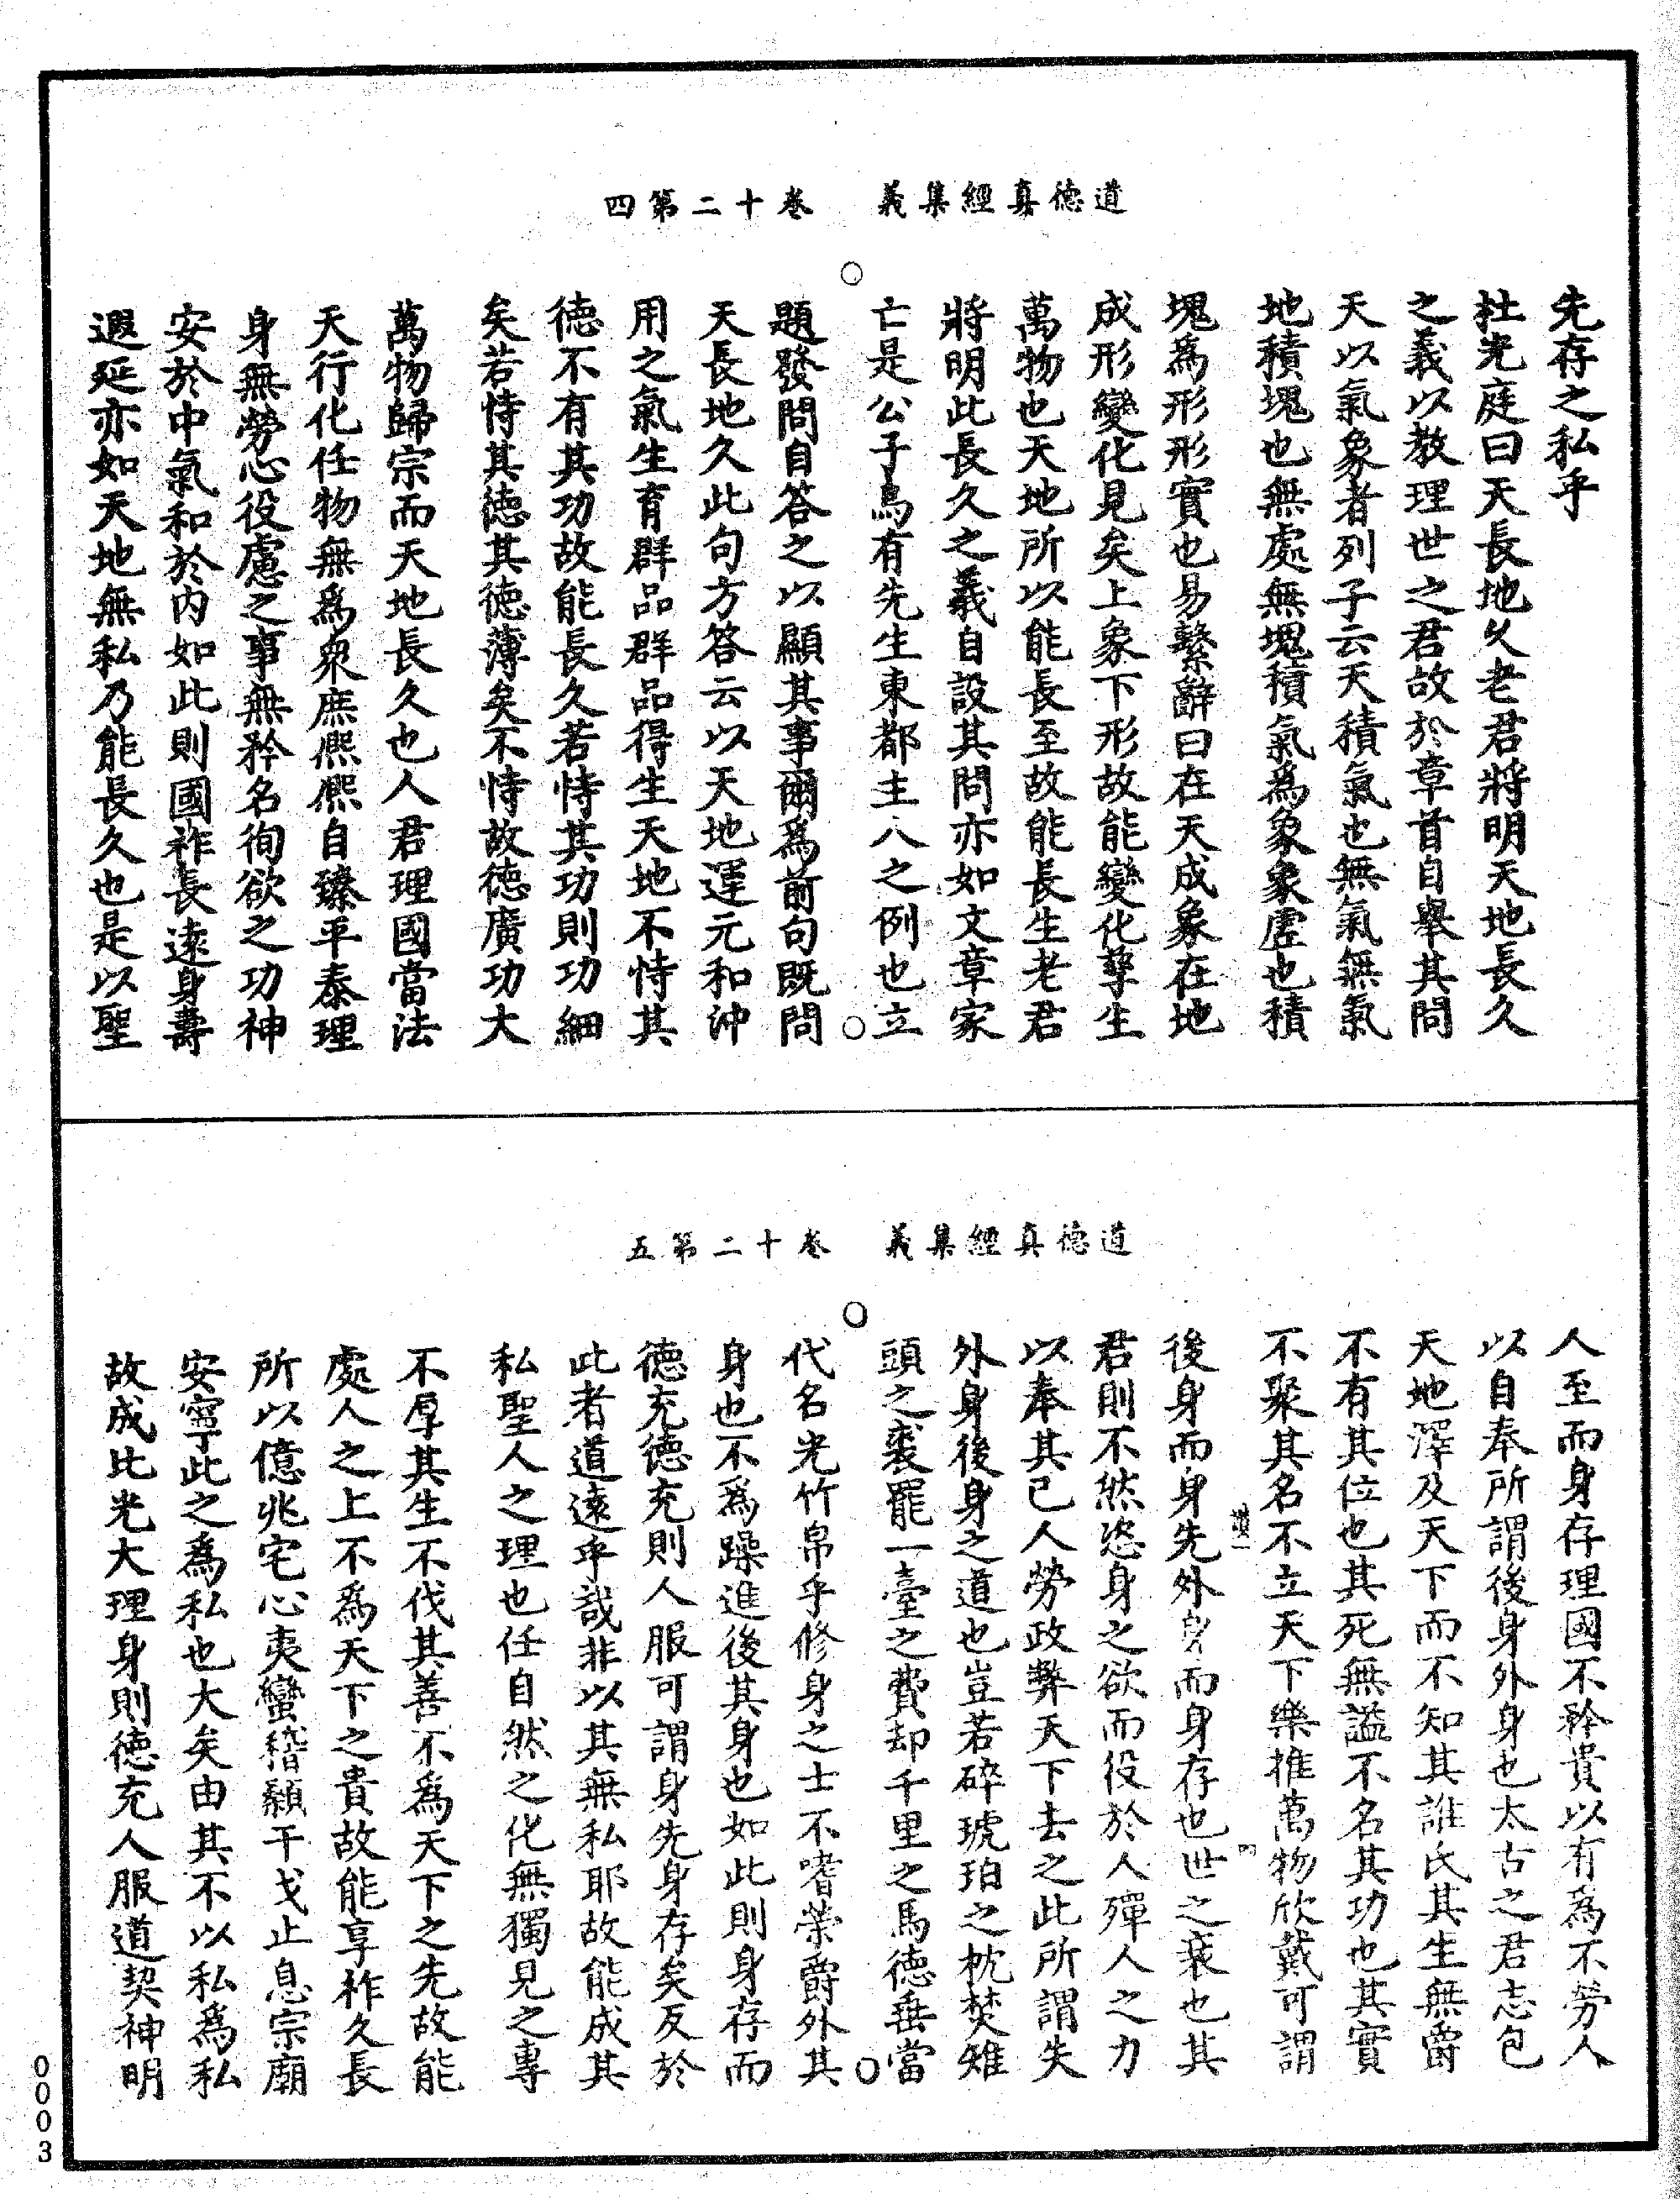 道德真經集義　卷十二第四
先存之私乎
杜光庭曰天長地久老君將明天地長久
之義以教理世之君故於章首自舉其問
天以氣象者列子云天積氣也無氣無氣
地積塊也無處無塊積氣為象象虛也積
塊爲形形實也易繫辭曰在天成象在地
成形變化見矣上象下形故能變化孳生
萬物也天地所以能長至故能長生老君
將明此長久之義自設其問亦如文章家
亡是公子烏有先生東都主人之例也立
題發問自答之以顯其事爾爲前句既問
天長地久此句方答云以天地運元和沖
用之氣生育群品群品得生天地不恃其
德不有其功故能長久若恃其功則功細
矣若恃其德其德薄矣不恃故德廣功大
萬物歸宗而天地長久也人君理國當法
天行化任物無爲衆庶熙熙自臻平泰理
身無勞心役慮之事無矜名徇欲之功神
安於中氣和於内如此則國祚長遠身壽
遐延亦如天地無私乃能長久也是以聖
道德真經集義　卷十二第五
人至而身存理國不矜貴以有爲不勞人
以自奉所謂後身外身也太古之君志包
天地澤及天下而不知其誰氏其生無爵
不有其位也其死無謚不名其功也其實
不聚其名不立天下樂推萬物欣戴可謂
後身而身先外身而身存也世之衰也其
君則不然恣身之欲而役於人殫人之力
以奉其己人勞政弊天下去之此所謂失
外身後身之道也豈若碎琥珀之枕焚雉
頭之裘罷一臺之費却千里之馬德垂當
代名光竹帛乎修身之士不嗜榮爵外其
身也不爲躁進後其身也如此則身存而
德充德充則人服可謂身先身存矣反於
此者道遠乎哉非以其無私耶故能成其
私聖人之理也任自然之化無獨見之專
不厚其生不伐其善不爲天下之先故能
處人之上不爲天下之貴故能享祚久長
所以億兆宅心夷蠻稽顙干戈止息宗廟
安寧此之爲私也大矣由其不以私爲私
故成比光大理身則德充人服道契神明
0003